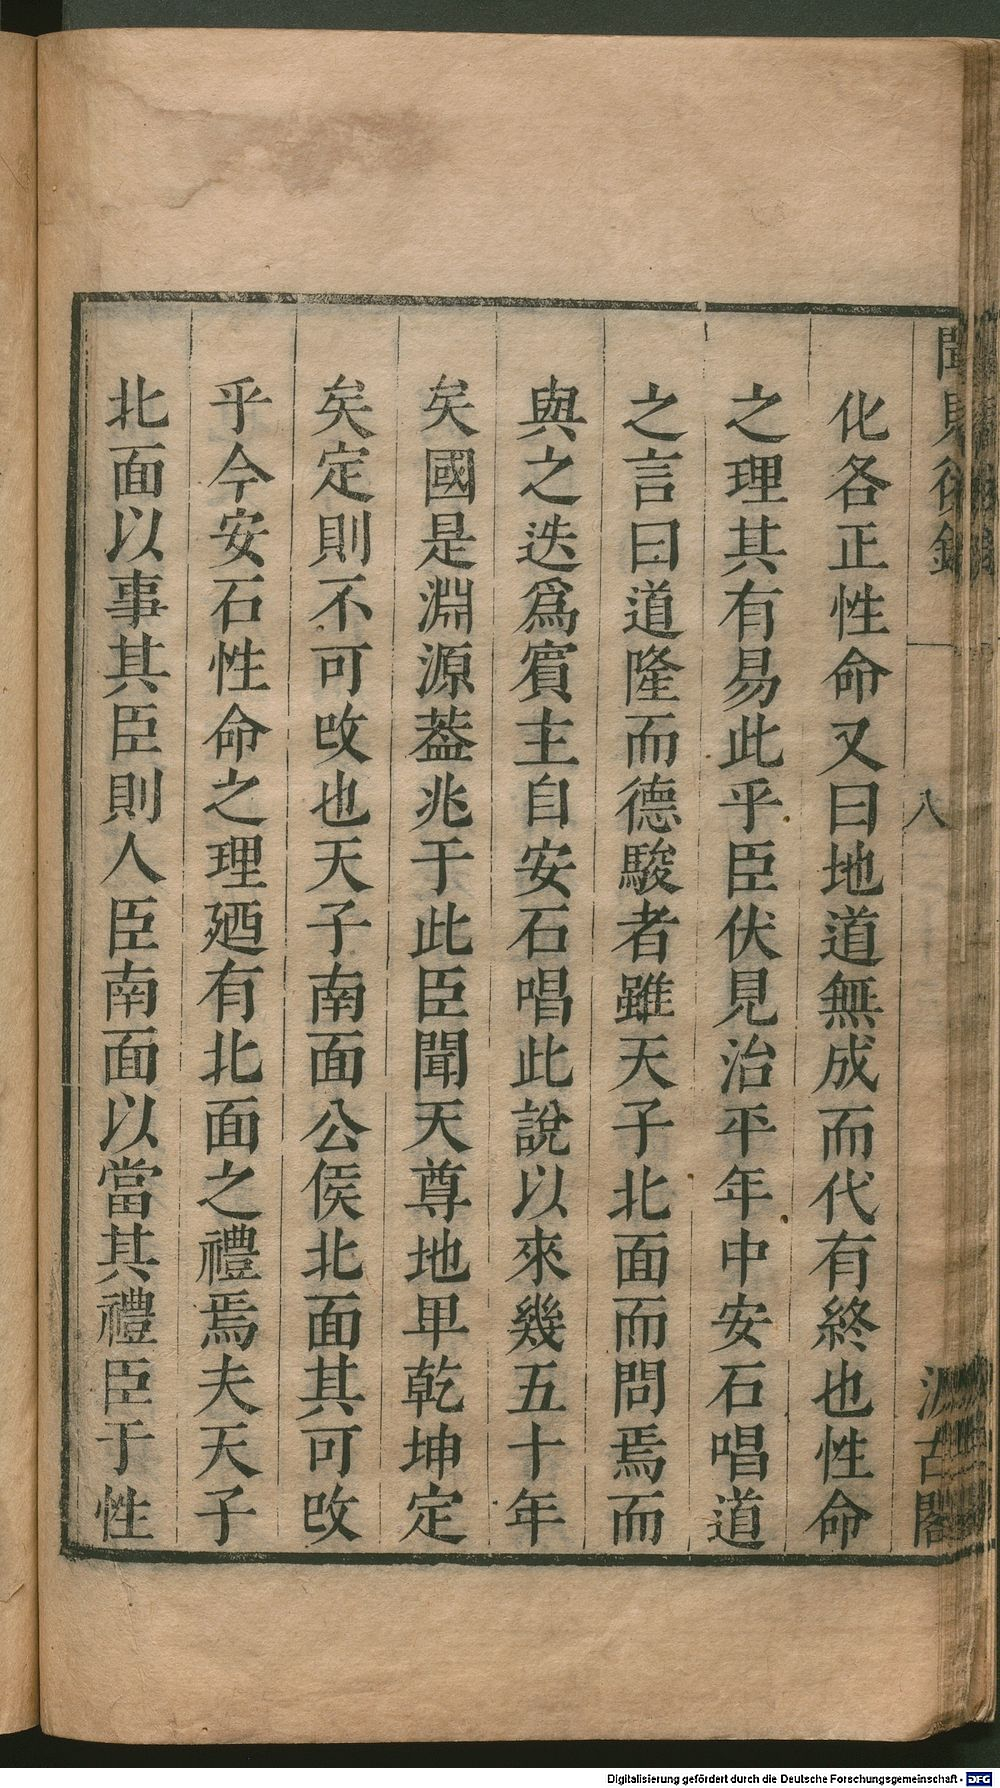 聞見後錄
八
汲古閣
化各正性命又曰地道無成而代有終也性命
之理其有易此乎臣伏見治平年中安石唱道
之言曰道隆而德駿者雖天子北面而問焉而
與之迭爲賔主自安石唱此說以來幾五十年
矣國是淵源葢兆于此臣聞天尊地卑乾坤定
矣定則不可攺也天子南面公侯北面其可攺
乎今安石性命之理廼有北面之禮焉夫天子
北面以事其臣則人臣南面以當其禮臣于性
Digitalisierung gefördert durch die Deutsche Forschungsgemeinschaft - DFG